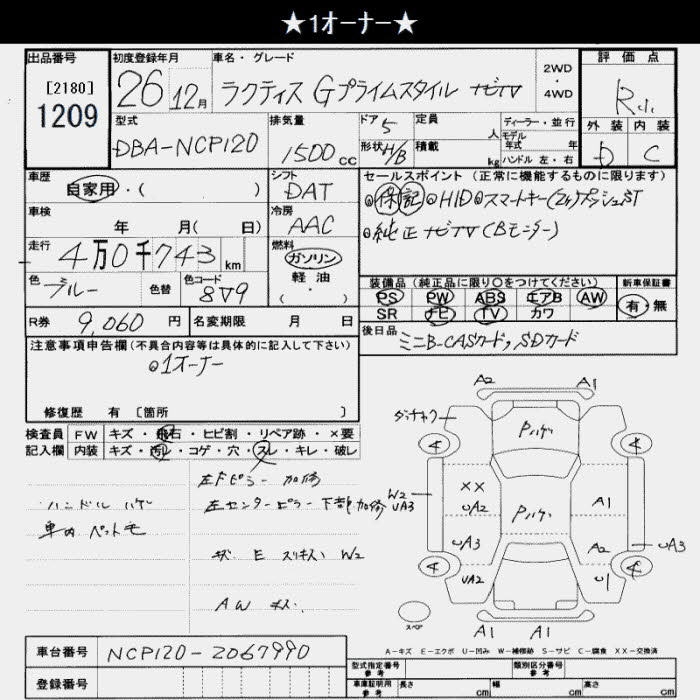 ★1オーナー★
出品番号
[2180]
1209
初度登録年月
26 12月
車名・グレード
ラクティス Gプライムスタイル ナビTV
2WD
・
4WD
評価点
R
外装 内装
D C
型式
DBA-NCP120
排気量
1500 cc
ドア 5
形状 H/B
定員
人
積載
kg
ディーラー・並行
モデル
年式 年
ハンドル 左・右
車歴
自家用・( )
シフト
DAT
車検
年 月( 日)
冷房
AAC
走行
4万0千743 km
燃料
ガソリン
軽油
( ・ )
色
ブルー
色替
色コード
8V9
R券 9,060 円
名変期限 月 日
セールスポイント(正常に機能するものに限ります)
◎保記◎HID◎スマートキー(2ヶ)プッシュST
◎純正ナビTV(Bモニター)
装備品(純正品に限り○をつけてください)
PS PW ABS エアB AW
SR ナビ TV カワ
新車保証書
有・無
後日品
ミニB-CASカード,SDカード
注意事項申告欄(不具合内容等は具体的に記入して下さい)
◎1オーナー
修復歴 有〔箇所 〕
検査員
記入欄
FW キズ・飛石・ヒビ割・リペア跡・×要
内装 キズ・汚レ・コゲ・穴・スレ・キレ・破レ
左Fピラー 加修
左センターピラー下部加修
ハンドル ハゲ
車内 ペット毛
キズ E スリキズ W2
AW キズ
A2 A1
Pハゲ
W2
UA3
XX
UA2
Pハゲ
A1
UA3
A2
UA3
UA2
U1
スペア
A1 A1
A−キズ E−エクボ U−凹み W−補修跡 S−サビ C−腐食 XX−交換済
車台番号
NCP120-2067990
登録番号
型式指定番号
参考
類別区分番号
参考
車庫証明用
参考
長さ cm
幅 cm
高さ cm